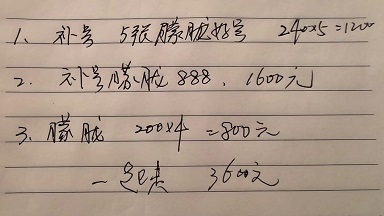 1、补号 5张朦胧好号 240x5=1200
2、补号朦胧888、1600元
3、朦胧 200x4=800元
一起 3600元